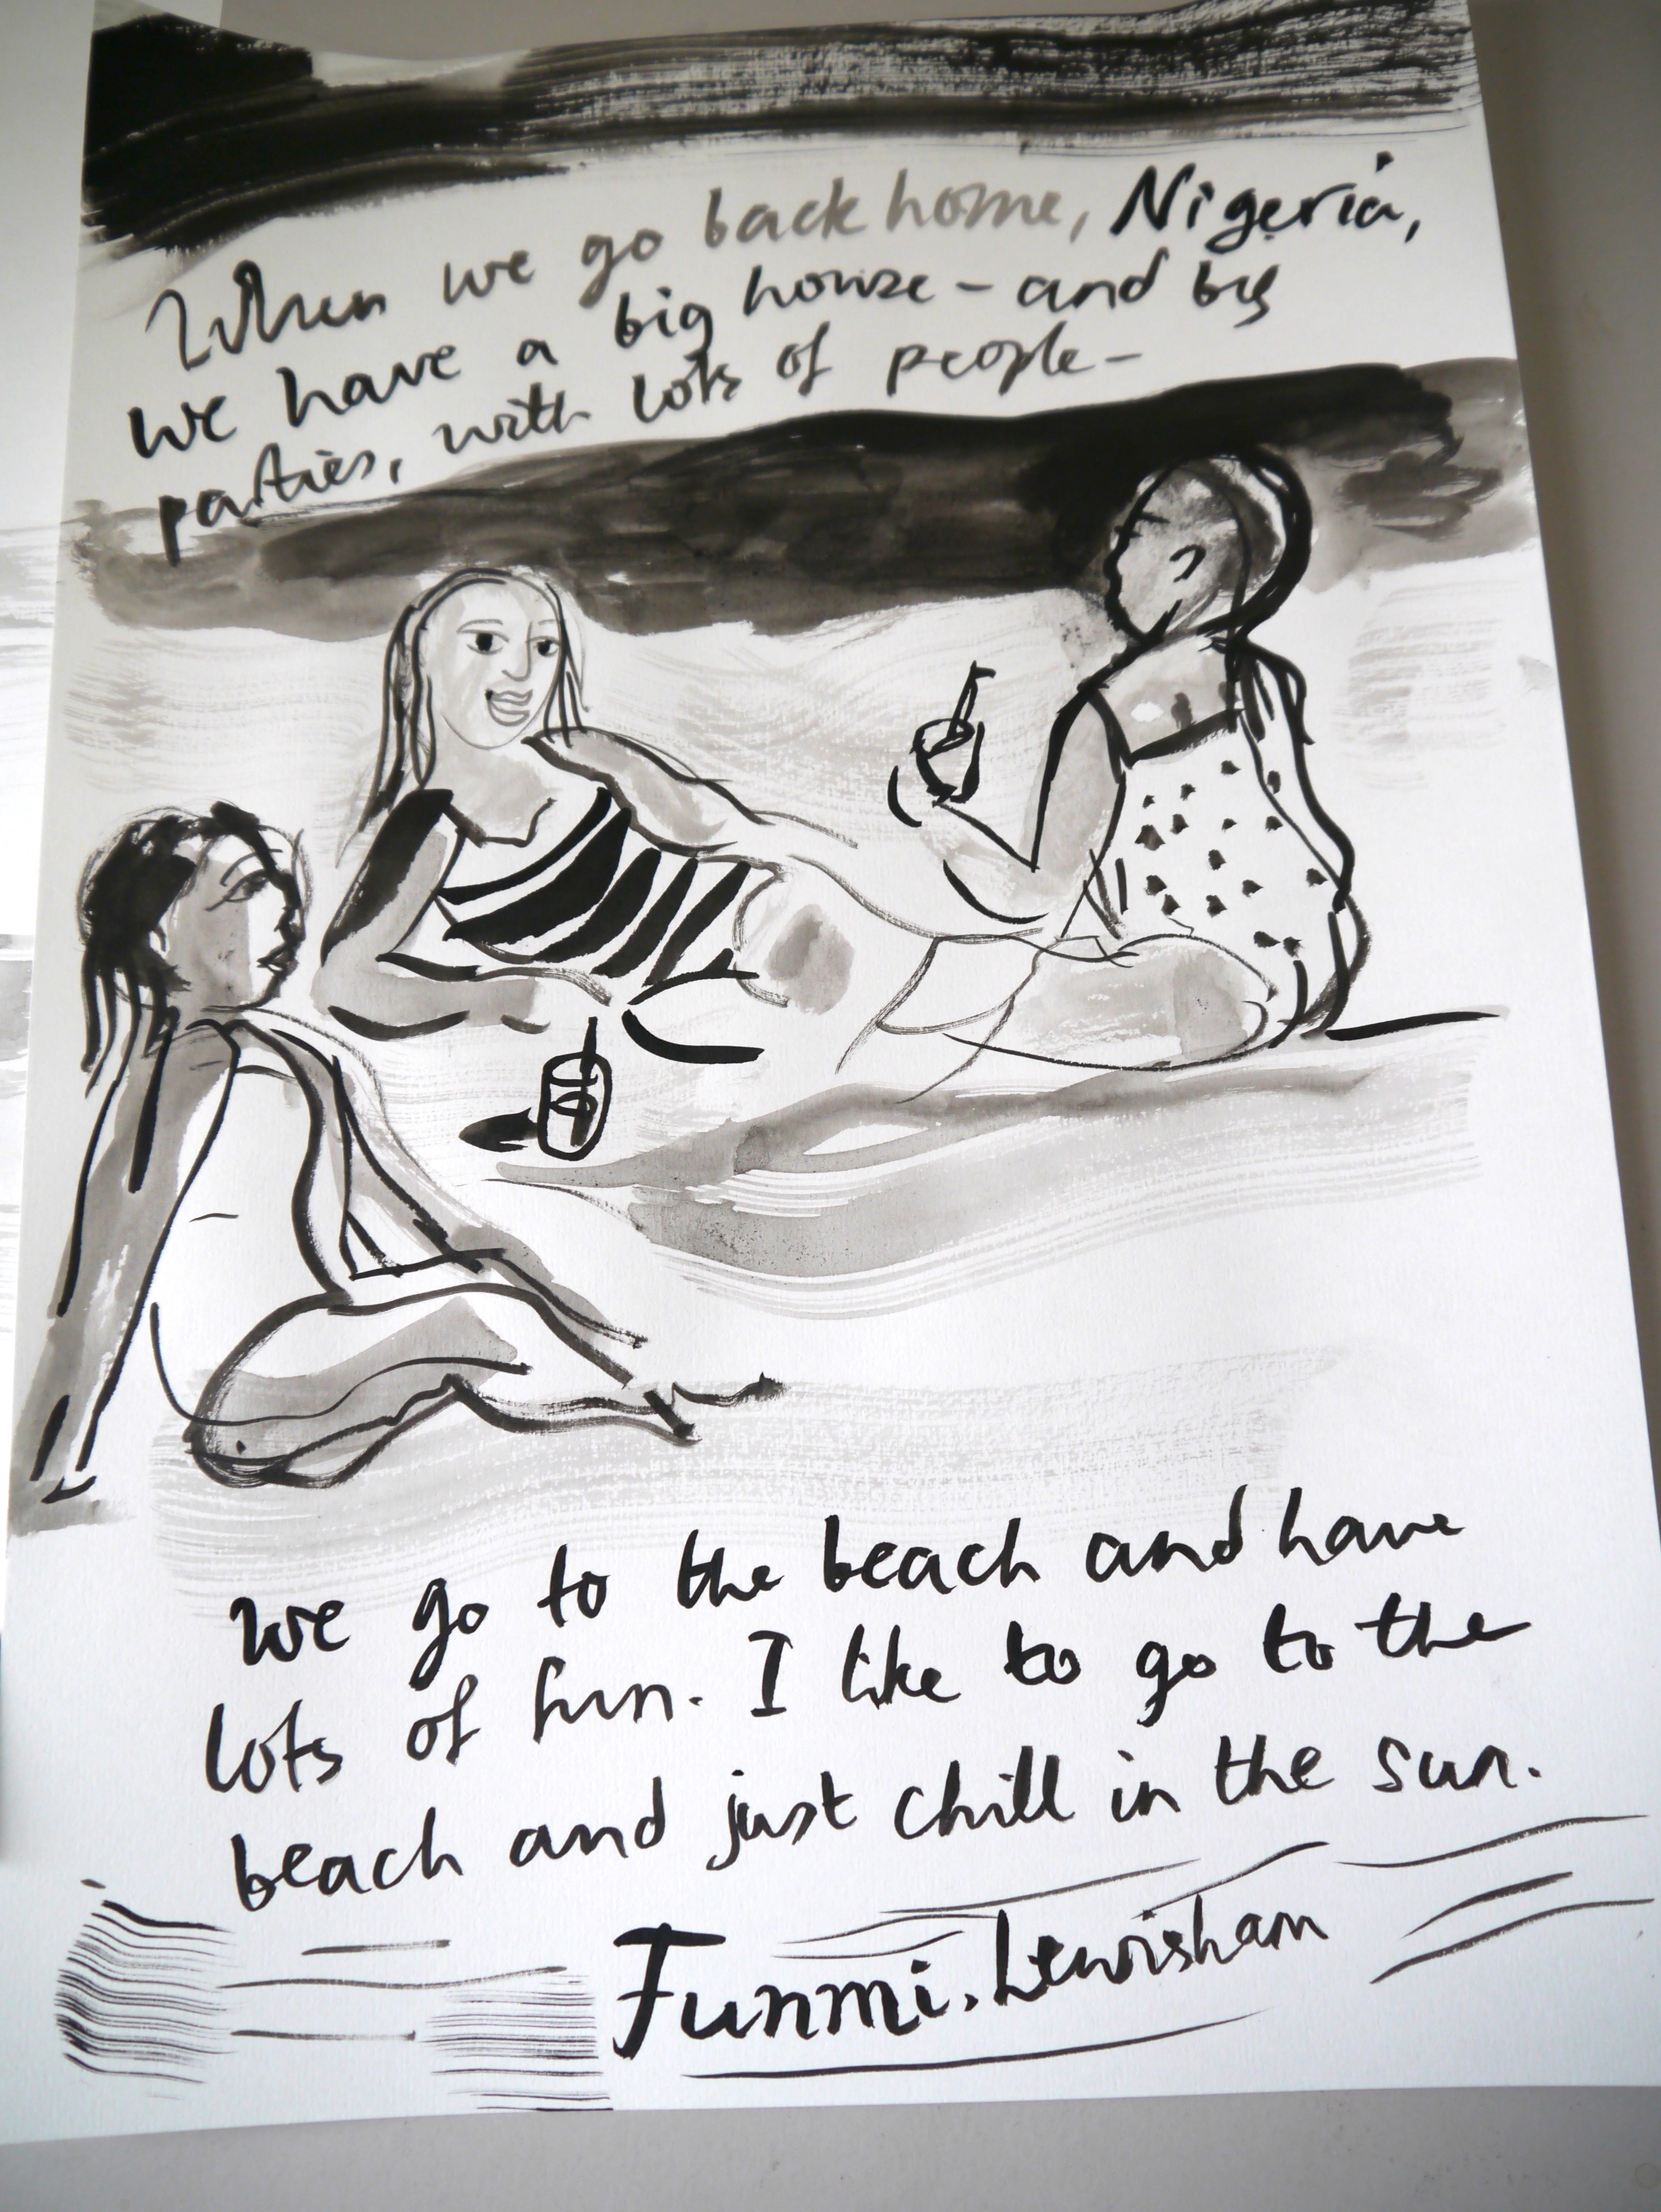 When we go back home, Nigeria,
we have a big house - and big
parties, with lots of people -
We go to the beach and have
lots of fun. I like to go to the
beach and just chill in the sun.
Funmi. Lewisham